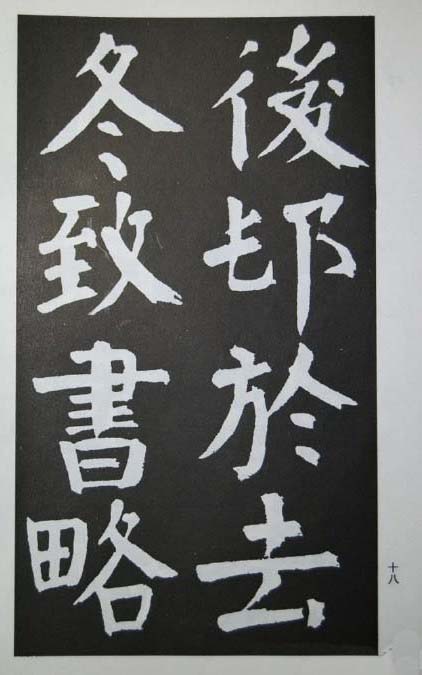 後邨於去
冬致書略
十八